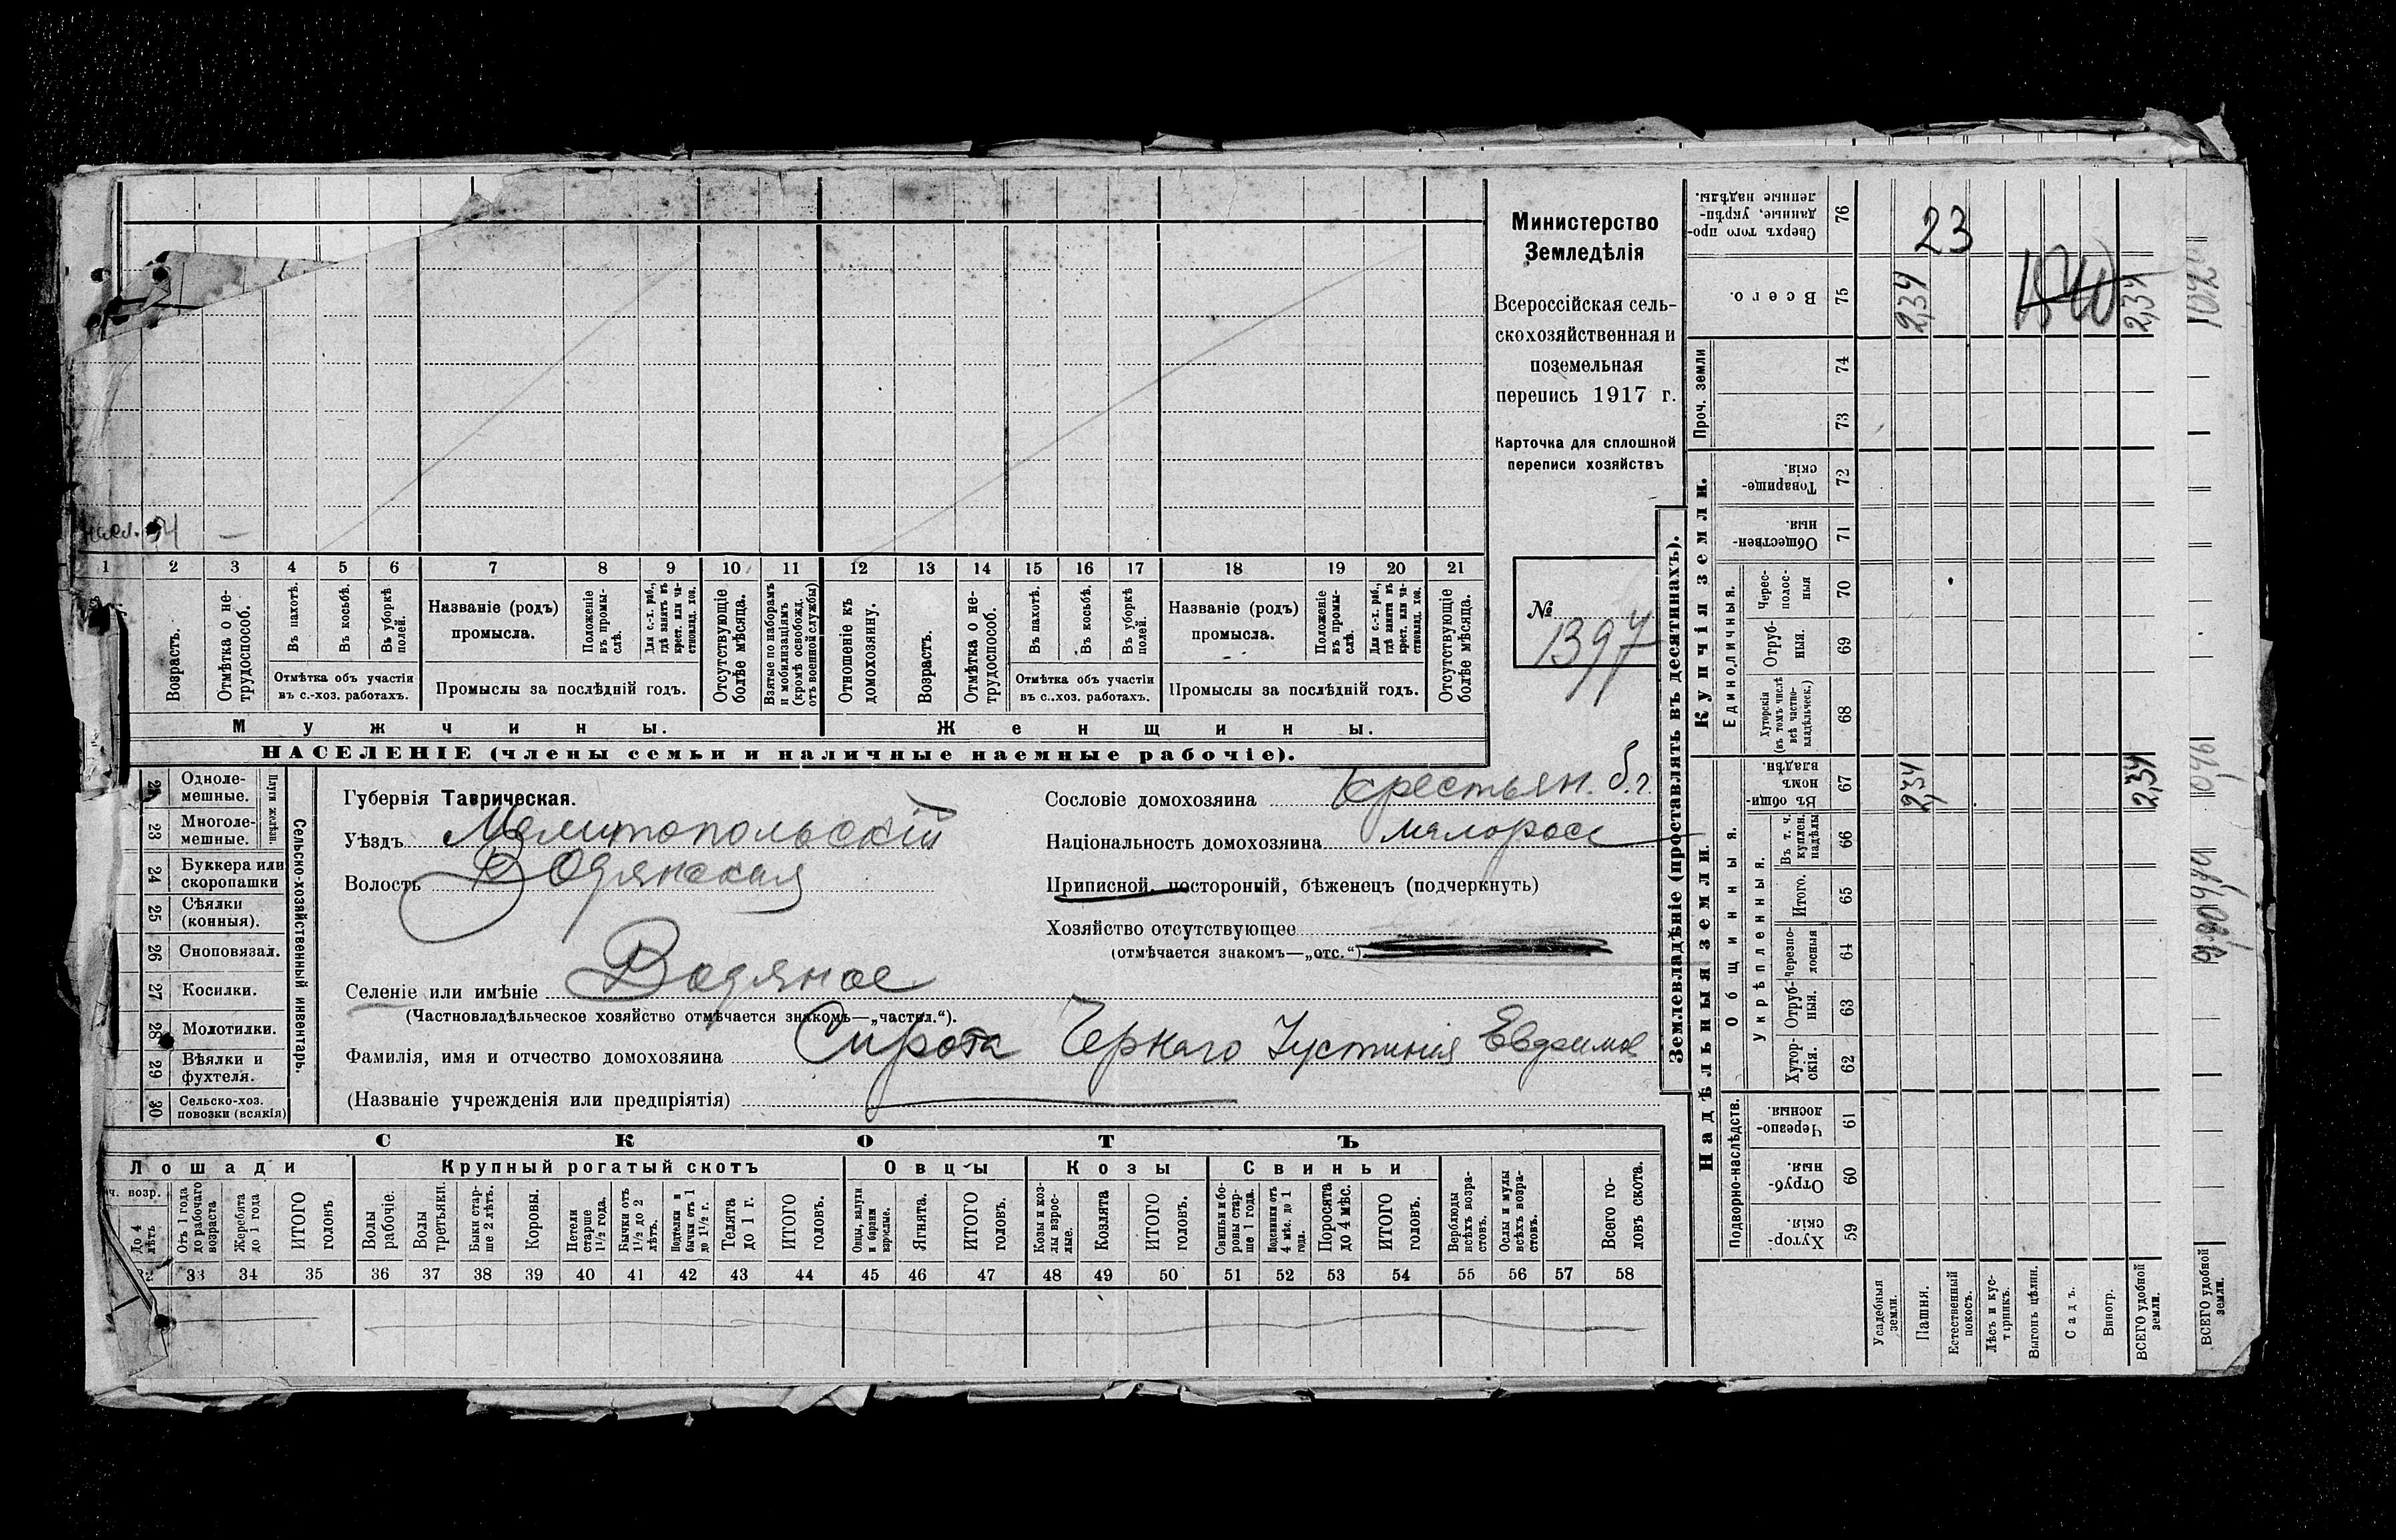 Министерство
Земледѣлія
Всероссійская сель-
скохозяйственная и
поземельная
перепись 1917 г.
Карточка для сплошной
переписи хозяйствъ
№
1397
1 2 3 4 5 6 7 8 9 10 11 12 13 14 15 16 17 18 19 20 21
Возрастъ.
Отмѣтка о не-
трудоспособ.
Въ пахотѣ.
Въ косьбѣ.
Въ уборкѣ
полей.
Отмѣтка объ участіи
въ с.-хоз. работахъ.
Названіе (родъ)
промысла.
Положеніе
въ промы-
слѣ.
Для с.-х. раб.,
гдѣ занятъ въ
крест. или ча-
стновлад. хоз.
Промыслы за послѣдній годъ.
Отсутствующіе
болѣе мѣсяца.
Взятые по наборамъ
и мобилизаціямъ
(кромѣ освобожд.
отъ военной службы)
Отношеніе къ
домохозяину.
Возрастъ.
Отмѣтка о не-
трудоспособ.
Въ пахотѣ.
Въ косьбѣ.
Въ уборкѣ
полей.
Отмѣтка объ участіи
въ с.-хоз. работахъ.
Названіе (родъ)
промысла.
Положеніе
въ промы-
слѣ.
Для с.-х. раб.,
гдѣ занятъ въ
крест. или ча-
стновлад. хоз.
Промыслы за послѣдній годъ.
Отсутствующіе
болѣе мѣсяца.
Мужчины.
Женщины.
НАСЕЛЕНІЕ (члены семьи и наличные наемные рабочіе).
Сельско-хозяйственный инвентарь.
Плуги желѣзн.
Одноле-
мешные.
23 Многоле-
мешные.
24 Буккера или
скоропашки
25 Сѣялки
(конныя).
26 Сноповязал.
27 Косилки.
28 Молотилки.
29 Вѣялки и
фухтеля.
30 Сельско-хоз.
повозки (всякія)
Губернія Таврическая.
Уѣздъ Мелитопольскій
Волость Водянская
Селеніе или имѣніе Водяное
(Частновладѣльческое хозяйство отмѣчается знакомъ—„частвл.“).
Фамилія, имя и отчество домохозяина Сирота Чернаго Іустинія Евфимов
(Названіе учрежденія или предпріятія)
Сословіе домохозяина Крестьян. б.г.
Національность домохозяина малоросс
Приписной, посторонній, бѣженецъ (подчеркнуть)
Хозяйство отсутствующее
(отмѣчается знакомъ—„отс.“)
СКОТЪ
Лошади
Крупный рогатый скотъ
Овцы
Козы
Свиньи
До 4
лѣтъ
Отъ 1 года
до рабочаго
возраста
Жеребята
до 1 года
ИТОГО
головъ
Волы
рабочіе.
Волы
третьяки.
Быки стар-
ше 2 лѣтъ.
Коровы.
Нетели
старше
1½ года.
Бычки отъ
1½ до 2
лѣтъ.
Подтелки и
бычки отъ 1
до 1½ г.
Телята
до 1 г.
ИТОГО
головъ.
Овцы, валухи
и бараны
взрослые.
Ягнята.
ИТОГО
головъ.
Козы и коз-
лы взрос-
лые.
Козлята
ИТОГО
головъ.
Свиньи и бо-
ровы стар-
ше 1 года.
Подсвинки отъ
4 мѣс. до 1
года.
Поросята
до 4 мѣс.
ИТОГО
головъ.
Верблюды
всѣхъ возра-
стовъ.
Ослы и мулы
всѣхъ возра-
стовъ.
Всего го-
ловъ скота.
32 33 34 35 36 37 38 39 40 41 42 43 44 45 46 47 48 49 50 51 52 53 54 55 56 57 58
Землевладѣніе (проставлять въ десятинахъ).
Надѣльныя земли.
Купчія земли.
Проч. земли
Подворно-наслѣдств.
Общинныя.
Укрѣпленныя.
Единоличныя.
Хутор-
скія. 59
Отруб-
ныя. 60
Черезпо-
лосныя. 61
Хутор-
скія. 62
Отруб-
ныя. 63
черезпо-
лосныя 64
Итого. 65
Въ т. ч.
куплен.
надѣлы 66
Въ общин-
номъ
владѣн. 67
Хуторскія
(въ томъ числѣ
всѣ частно-
владѣльческ.) 68
Отруб-
ныя. 69
Черес-
полос-
ныя 70
Обществен-
ныя. 71
Товарище-
скія. 72
73
74
Всего. 75
Сверхъ того про-
данные, укрѣп-
ленные надѣлы. 76
23
2,34
2,34
2,34
2,34
Усадебныя
земли.
Пашня.
Естественный
покосъ.
Лѣсъ и кус-
тарникъ.
Выгонъ цѣлин.
Садъ.
Виногр.
ВСЕГО удобной
земли.
ВСЕГО удобной
земли.